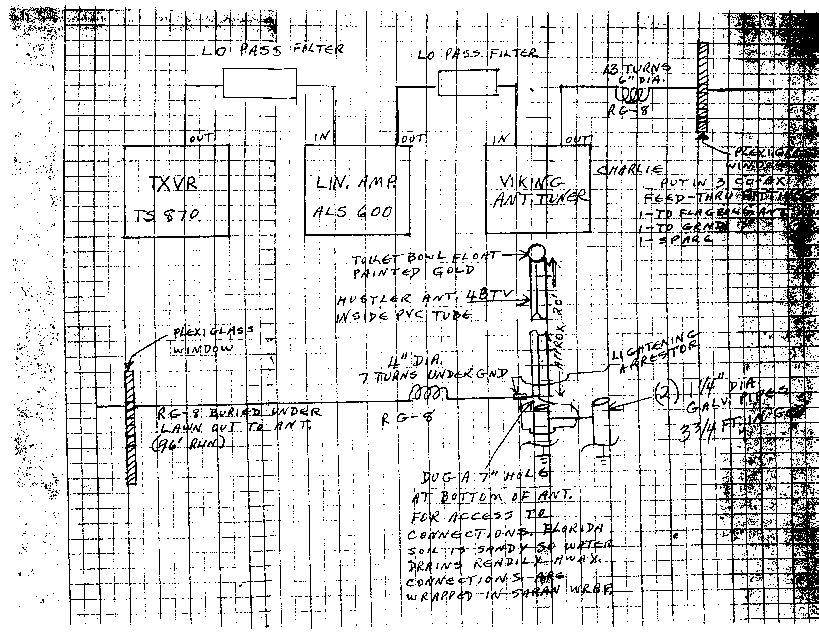 LO PASS FILTER
LO PASS FILTER
13 TURNS
6" DIA.
RG-8
OUT
IN
OUT
IN
OUT
TXVR
TS 870
LIN. AMP.
ALS 600
VIKING
ANT. TUNER
CHARLIE
PLEXIGLASS
WINDOW
PUT IN 3 CO-AX
FEED-THRU
1-TO
1-TO
1-SPARE
TOILET BOWL FLOAT
PAINTED GOLD
HUSTLER ANT. 4BTV
INSIDE PVC TUBE
APPROX. 20'
PLEXIGLASS
WINDOW
4" DIA.
7 TURNS UNDER GND
RG-8
LIGHTENING
ARRESTOR
(2) 1 1/4" DIA
GALV. PIPES
3 3/4 FT. IN
RG-8 BURIED UNDER
LAWN OUT TO ANT.
(96' RUN)
DUG A 7" HOLE
AT BOTTOM OF ANT.
FOR ACCESS TO
CONNECTIONS. FLORIDA
SOIL IS SANDY SO WATER
DRAINS READILY AWAY.
CONNECTIONS ARE
WRAPPED IN SARAN WRAP.